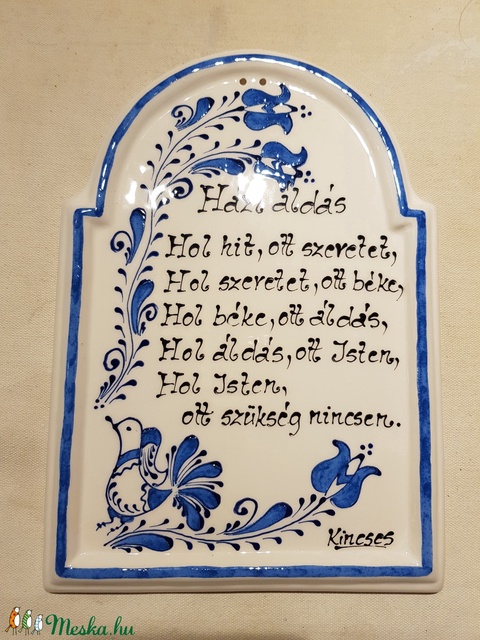 Házi áldás
Hol hit, ott szeretet,
Hol szeretet, ott béke,
Hol béke, ott áldás,
Hol áldás, ott Isten,
Hol Isten,
ott szükség nincsen.
Kincses
Meska.hu